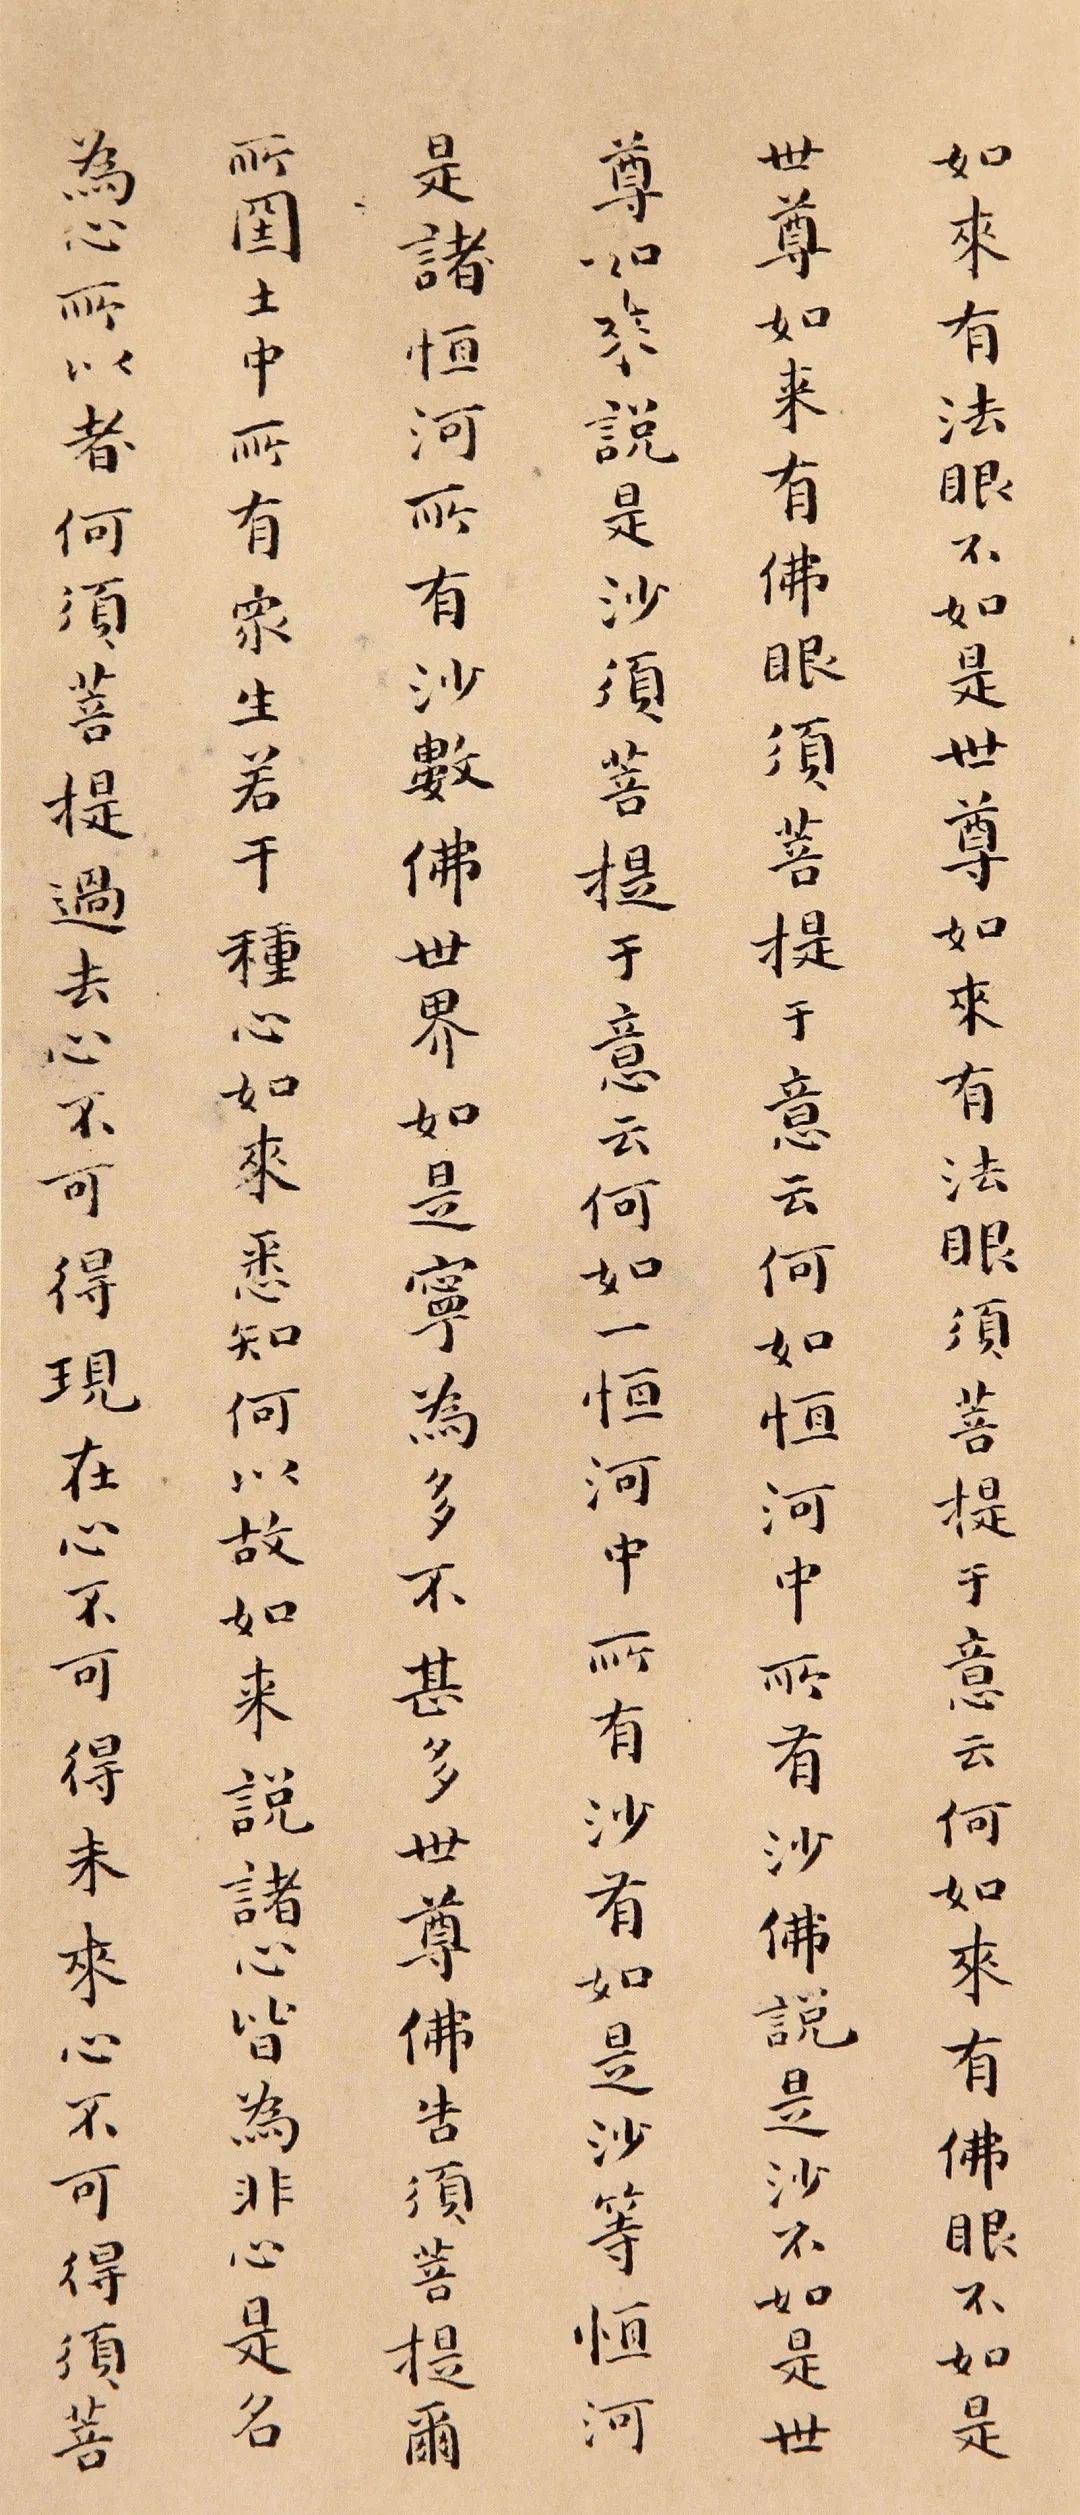 如來有法眼不如是世尊如來有法眼須菩提于意云何如來有佛眼不如是
世尊如来有佛眼須菩提于意云何如恒河中所有沙佛說是沙不如是世
尊如來說是沙須菩提于意云何如一恒河中所有沙有如是沙等恒河
是諸恒河所有沙數佛世界如是寧為多不甚多世尊佛告須菩提爾
所国土中所有衆生若干種心如來悉知何以故如来說諸心皆為非心是名
為心所以者何須菩提過去心不可得現在心不可得未來心不可得須菩